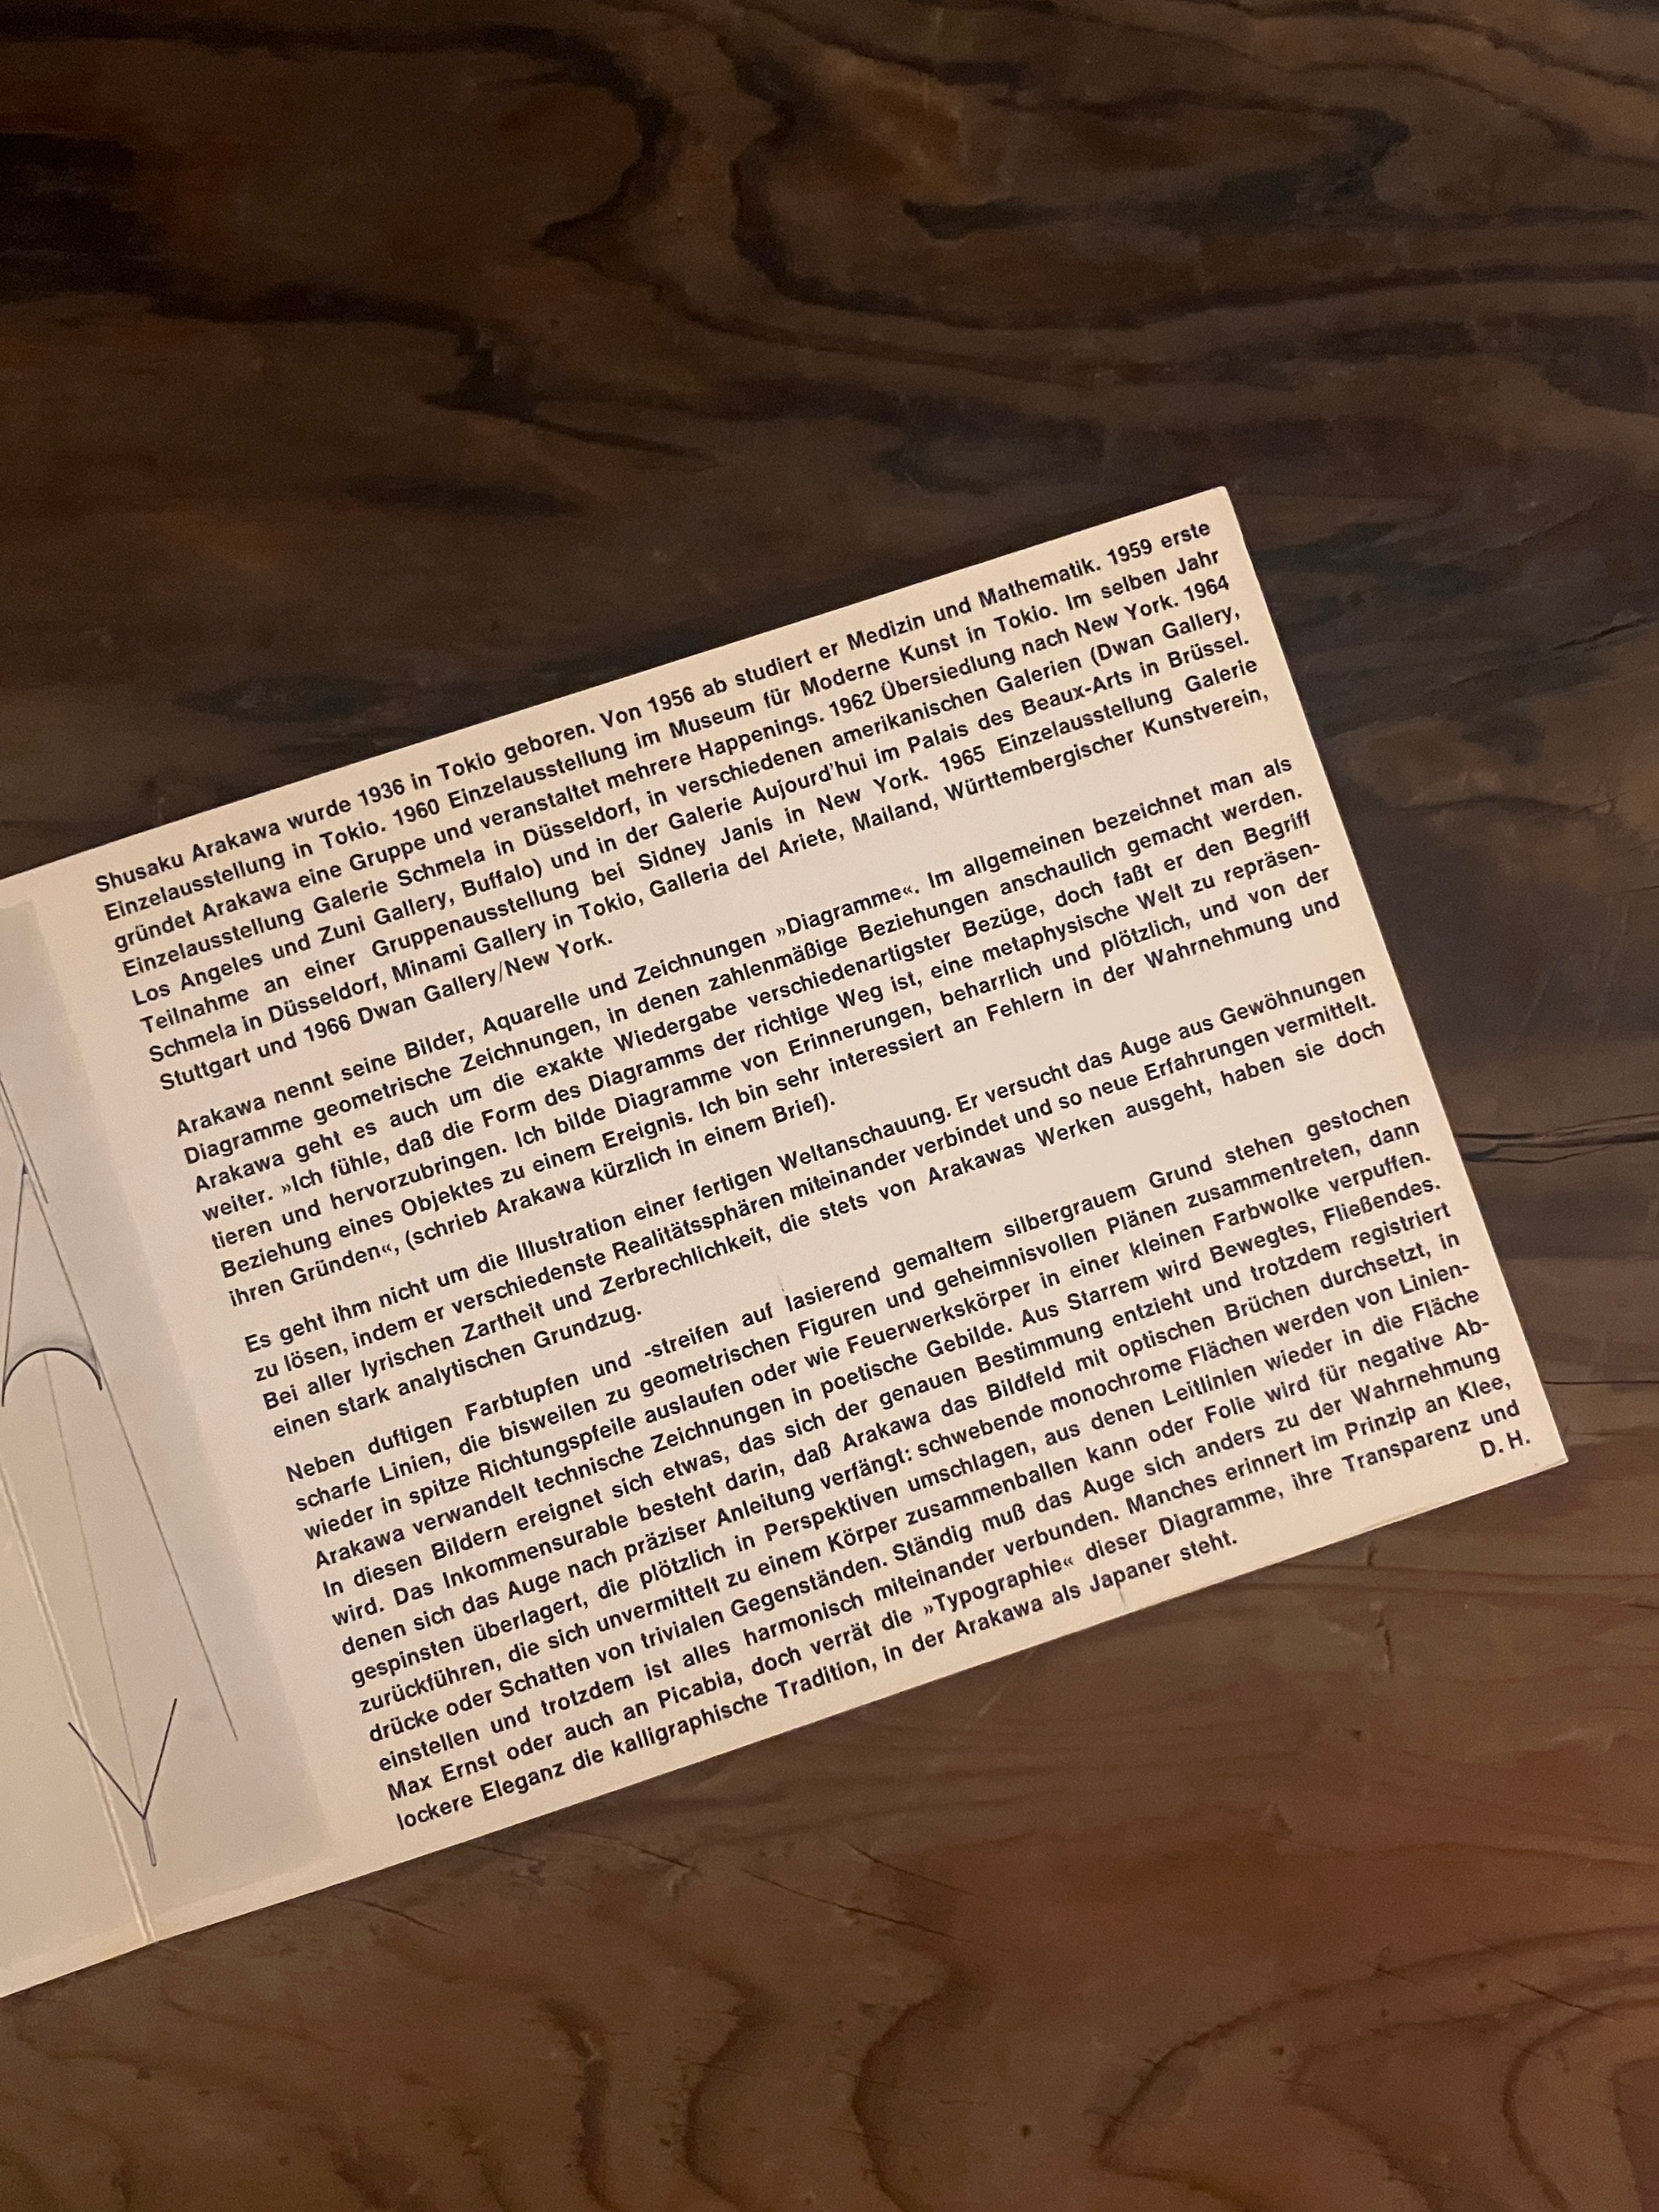 Shusaku Arakawa wurde 1936 in Tokio geboren. Von 1956 ab studiert er Medizin und Mathematik. 1959 erste
Einzelausstellung in Tokio. 1960 Einzelausstellung im Museum für Moderne Kunst in Tokio. Im selben Jahr
gründet Arakawa eine Gruppe und veranstaltet mehrere Happenings. 1962 Übersiedlung nach New York. 1964
Einzelausstellung Galerie Schmela in Düsseldorf, in verschiedenen amerikanischen Galerien (Dwan Gallery,
Los Angeles und Zuni Gallery, Buffalo) und in der Galerie Aujourd'hui im Palais des Beaux-Arts in Brüssel.
Teilnahme an einer Gruppenausstellung bei Sidney Janis in New York. 1965 Einzelausstellung Galerie
Schmela in Düsseldorf, Minami Gallery in Tokio, Galleria del Ariete, Mailand, Württembergischer Kunstverein,
Stuttgart und 1966 Dwan Gallery/New York.
Arakawa nennt seine Bilder, Aquarelle und Zeichnungen »Diagramme«. Im allgemeinen bezeichnet man als
Diagramme geometrische Zeichnungen, in denen zahlenmäßige Beziehungen anschaulich gemacht werden.
Arakawa geht es auch um die exakte Wiedergabe verschiedenartigster Bezüge, doch faßt er den Begriff
weiter. »Ich fühle, daß die Form des Diagramms der richtige Weg ist, eine metaphysische Welt zu repräsen-
tieren und hervorzubringen. Ich bilde Diagramme von Erinnerungen, beharrlich und plötzlich, und von der
Beziehung eines Objektes zu einem Ereignis. Ich bin sehr interessiert an Fehlern in der Wahrnehmung und
ihren Gründen«, (schrieb Arakawa kürzlich in einem Brief).
Es geht ihm nicht um die Illustration einer fertigen Weltanschauung. Er versucht das Auge aus Gewöhnungen
zu lösen, indem er verschiedenste Realitätssphären miteinander verbindet und so neue Erfahrungen vermittelt.
Bei aller lyrischen Zartheit und Zerbrechlichkeit, die stets von Arakawas Werken ausgeht, haben sie doch
einen stark analytischen Grundzug.
Neben duftigen Farbtupfen und -streifen auf lasierend gemaltem silbergrauem Grund stehen gestochen
scharfe Linien, die bisweilen zu geometrischen Figuren und geheimnisvollen Plänen zusammentreten, dann
wieder in spitze Richtungspfeile auslaufen oder wie Feuerwerkskörper in einer kleinen Farbwolke verpuffen.
Arakawa verwandelt technische Zeichnungen in poetische Gebilde. Aus Starrem wird Bewegtes, Fließendes.
In diesen Bildern ereignet sich etwas, das sich der genauen Bestimmung entzieht und trotzdem registriert
wird. Das Inkommensurable besteht darin, daß Arakawa das Bildfeld mit optischen Brüchen durchsetzt, in
denen sich das Auge nach präziser Anleitung verfängt: schwebende monochrome Flächen werden von Linien-
gespinsten überlagert, die plötzlich in Perspektiven umschlagen, aus denen Leitlinien wieder in die Fläche
zurückführen, die sich unvermittelt zu einem Körper zusammenballen kann oder Folie wird für negative Ab-
drücke oder Schatten von trivialen Gegenständen. Ständig muß das Auge sich anders zu der Wahrnehmung
einstellen und trotzdem ist alles harmonisch miteinander verbunden. Manches erinnert im Prinzip an Klee,
Max Ernst oder auch an Picabia, doch verrät die »Typographie« dieser Diagramme, ihre Transparenz und
lockere Eleganz die kalligraphische Tradition, in der Arakawa als Japaner steht.
D. H.